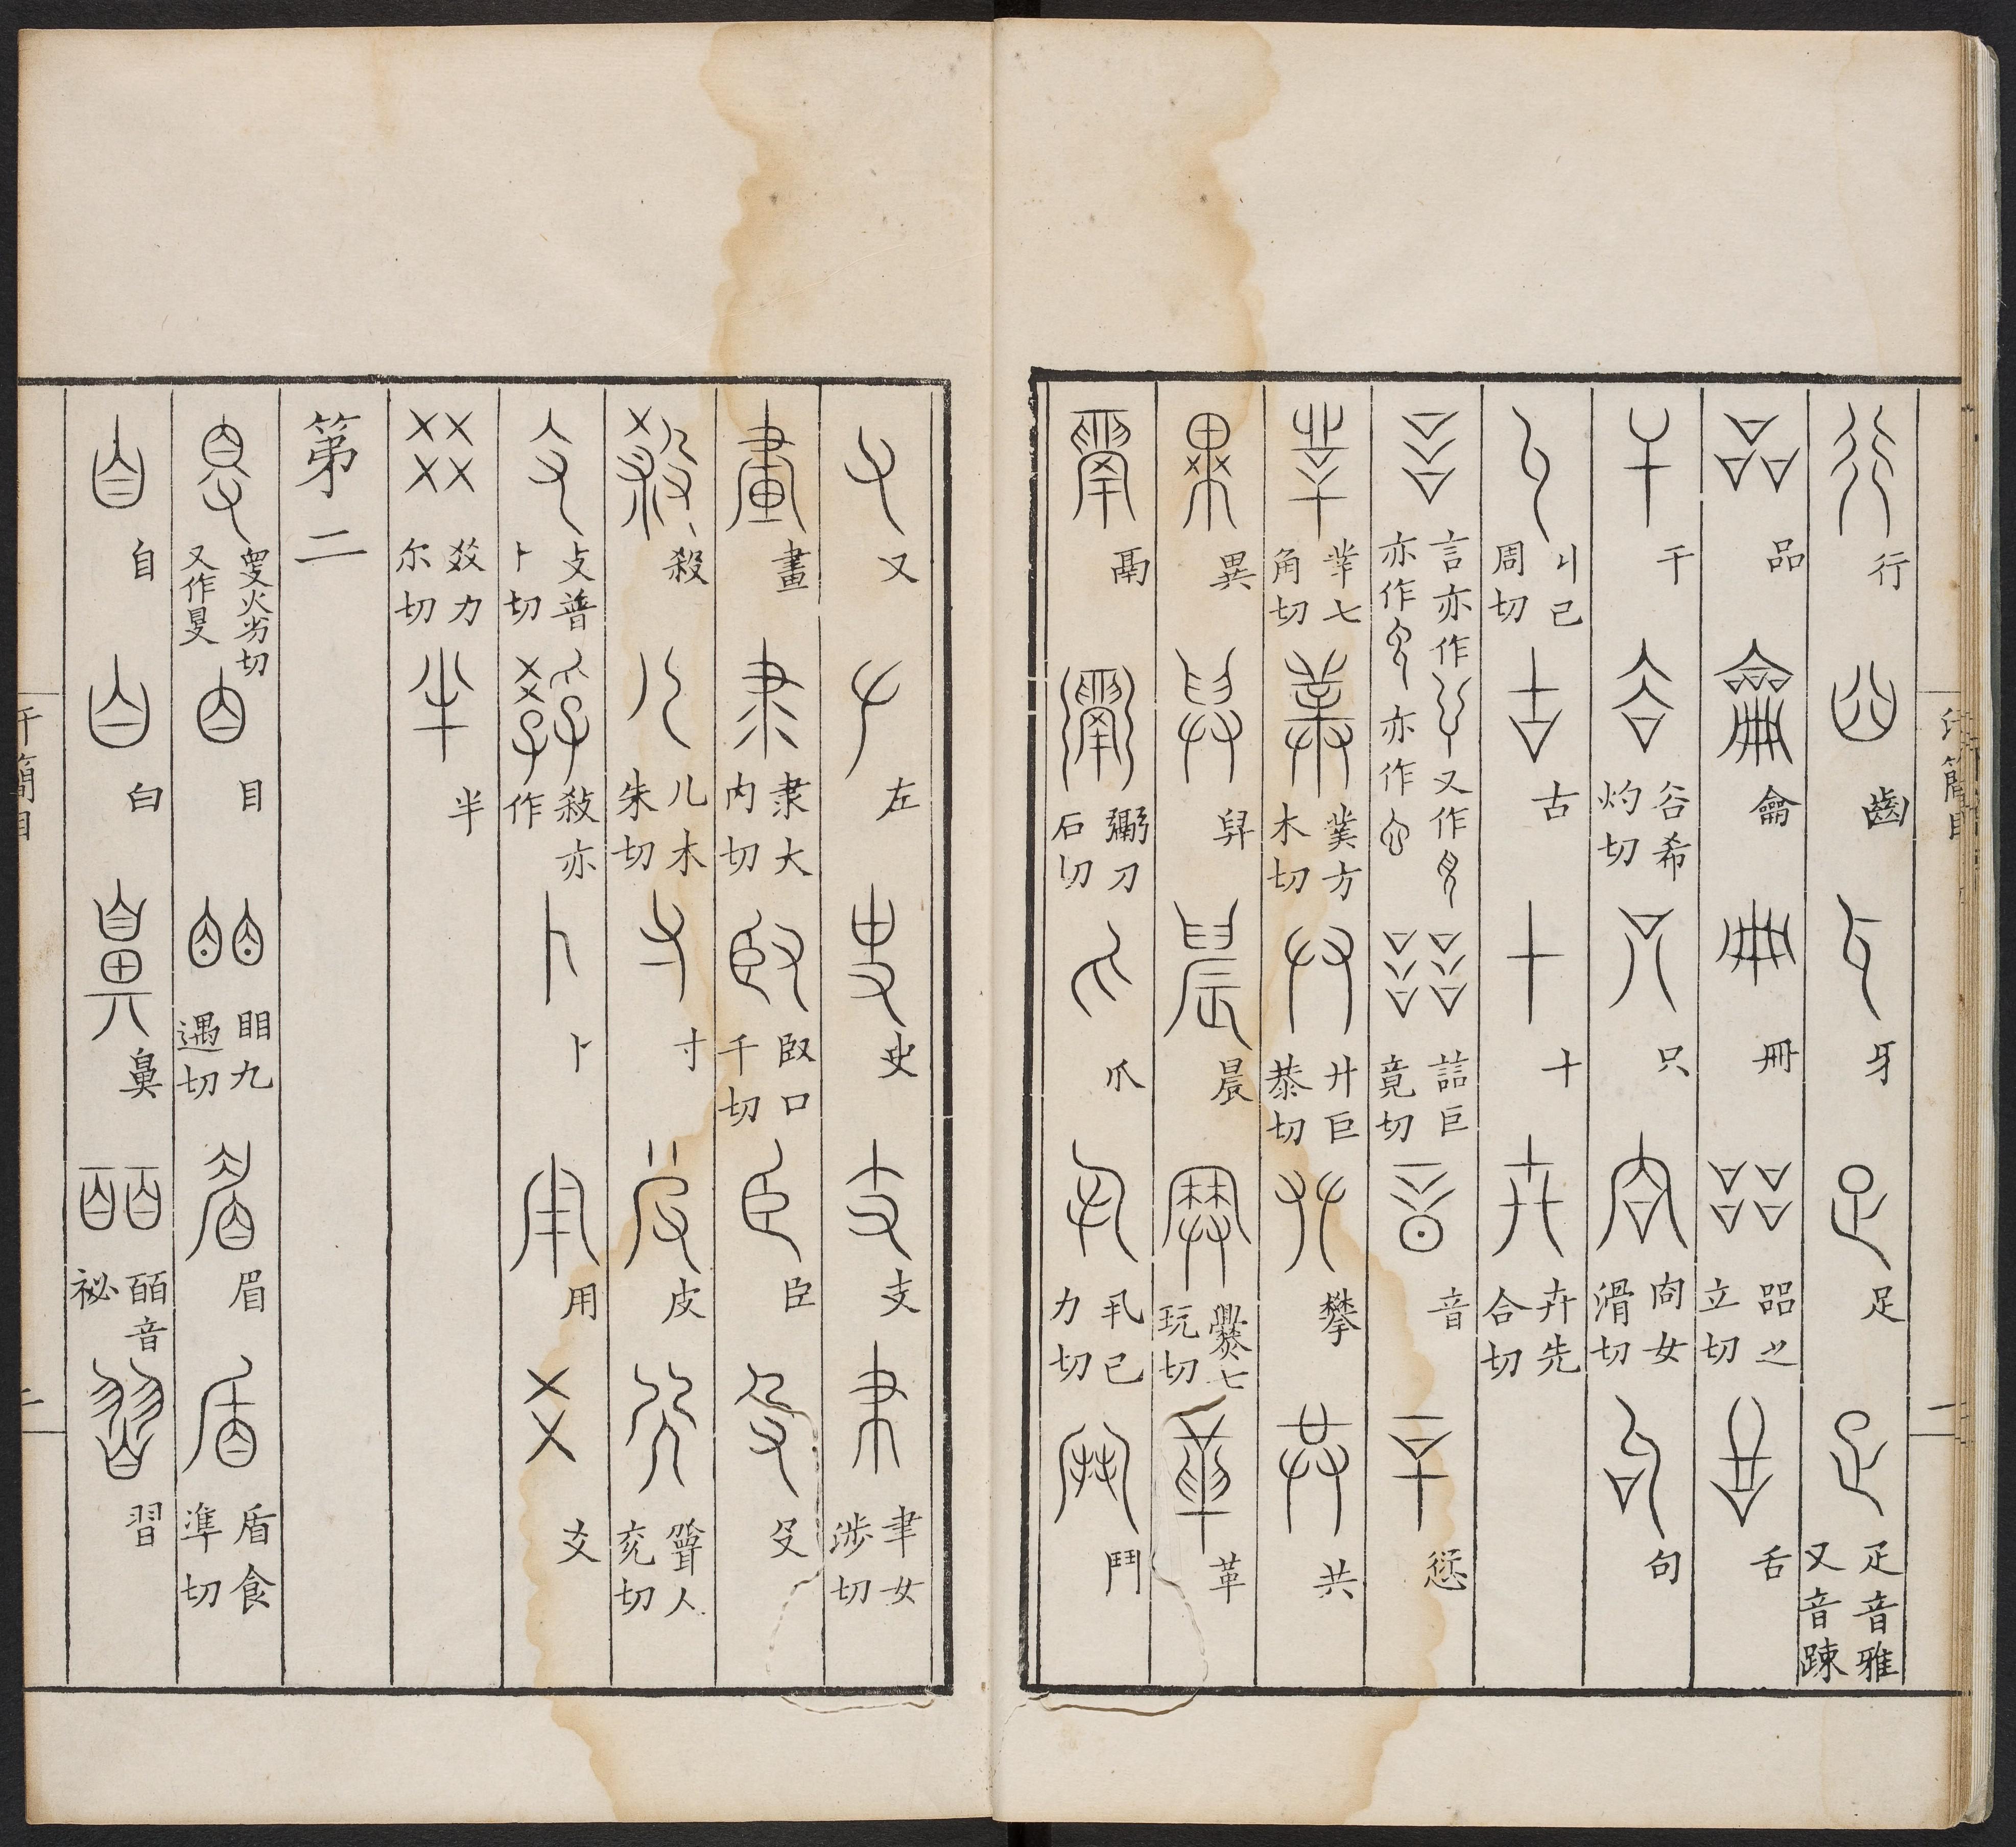 行 齒 牙 足 疋音雅又音踈
品 龠 冊 㗊之立切 舌
干 谷希灼切 只 㕯女滑切 句
丩己周切 古 十 卉先合切
言亦作 又作 亦作 亦作 誩巨竟切 音 䇂愆
丵七角切 菐方木切 廾巨恭切 攀 共
異 舁 晨 爨七玩切 革
鬲 䰜刀石切 爪 丮己力切 鬥
又 左 史 支 聿女涉切
畫 隶大內切 臤口千切 臣 殳
殺 几木朱切 寸 皮 㼱人兖切
攴普卜切 敎亦作 卜 用 爻
㸚力尔切 半
第二
𡕥火劣切又作𡕥 目 䀠九遇切 眉 盾食準切
自 白 鼻 皕音祕 習